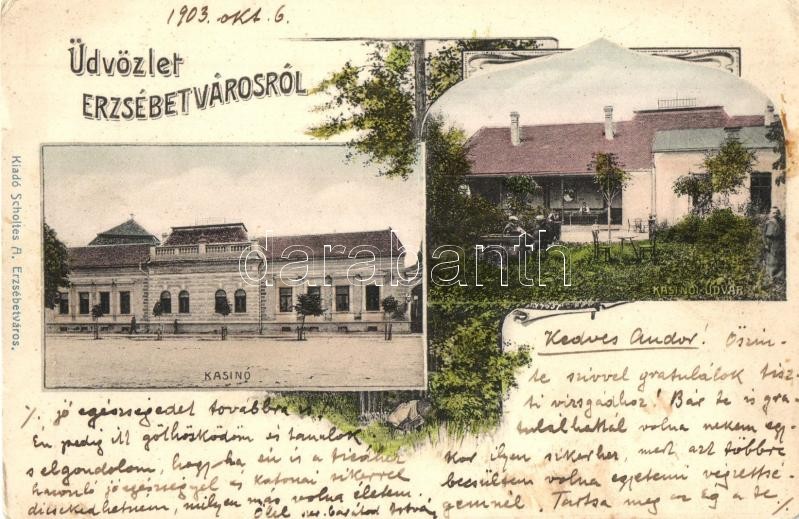 1903. okt. 6.
Üdvözlet
ERZSÉBETVÁROSRÓL
Kiadó Scholtes A. Erzsébetváros.
darabanth
KASINÓ
KASINÓI UDVAR
Kedves Andor! Őszin-
te szívvel gratulálok tisz-
ti vizsgádhoz! Bár te is gra-
tulálhattál volna nekem egy-
kor ilyen sikerhez, mert azt többre
becsültem volna egyetemi végzettsé-
gemnél. Tartsa meg az ég a te
./.
./. jó egészségedet továbbra is.
Én pedig itt göthösködöm és tanulok
s elgondolom, hogy ha én is a tiedhez
hasonló jó egészséggel és katonai sikerrel
dicsekedhetnem, milyen más volna életem.
Ölel barátod István